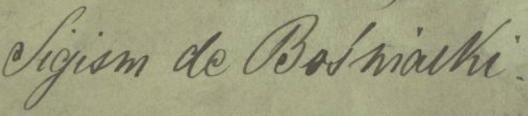 Sigism de Bośniacki.